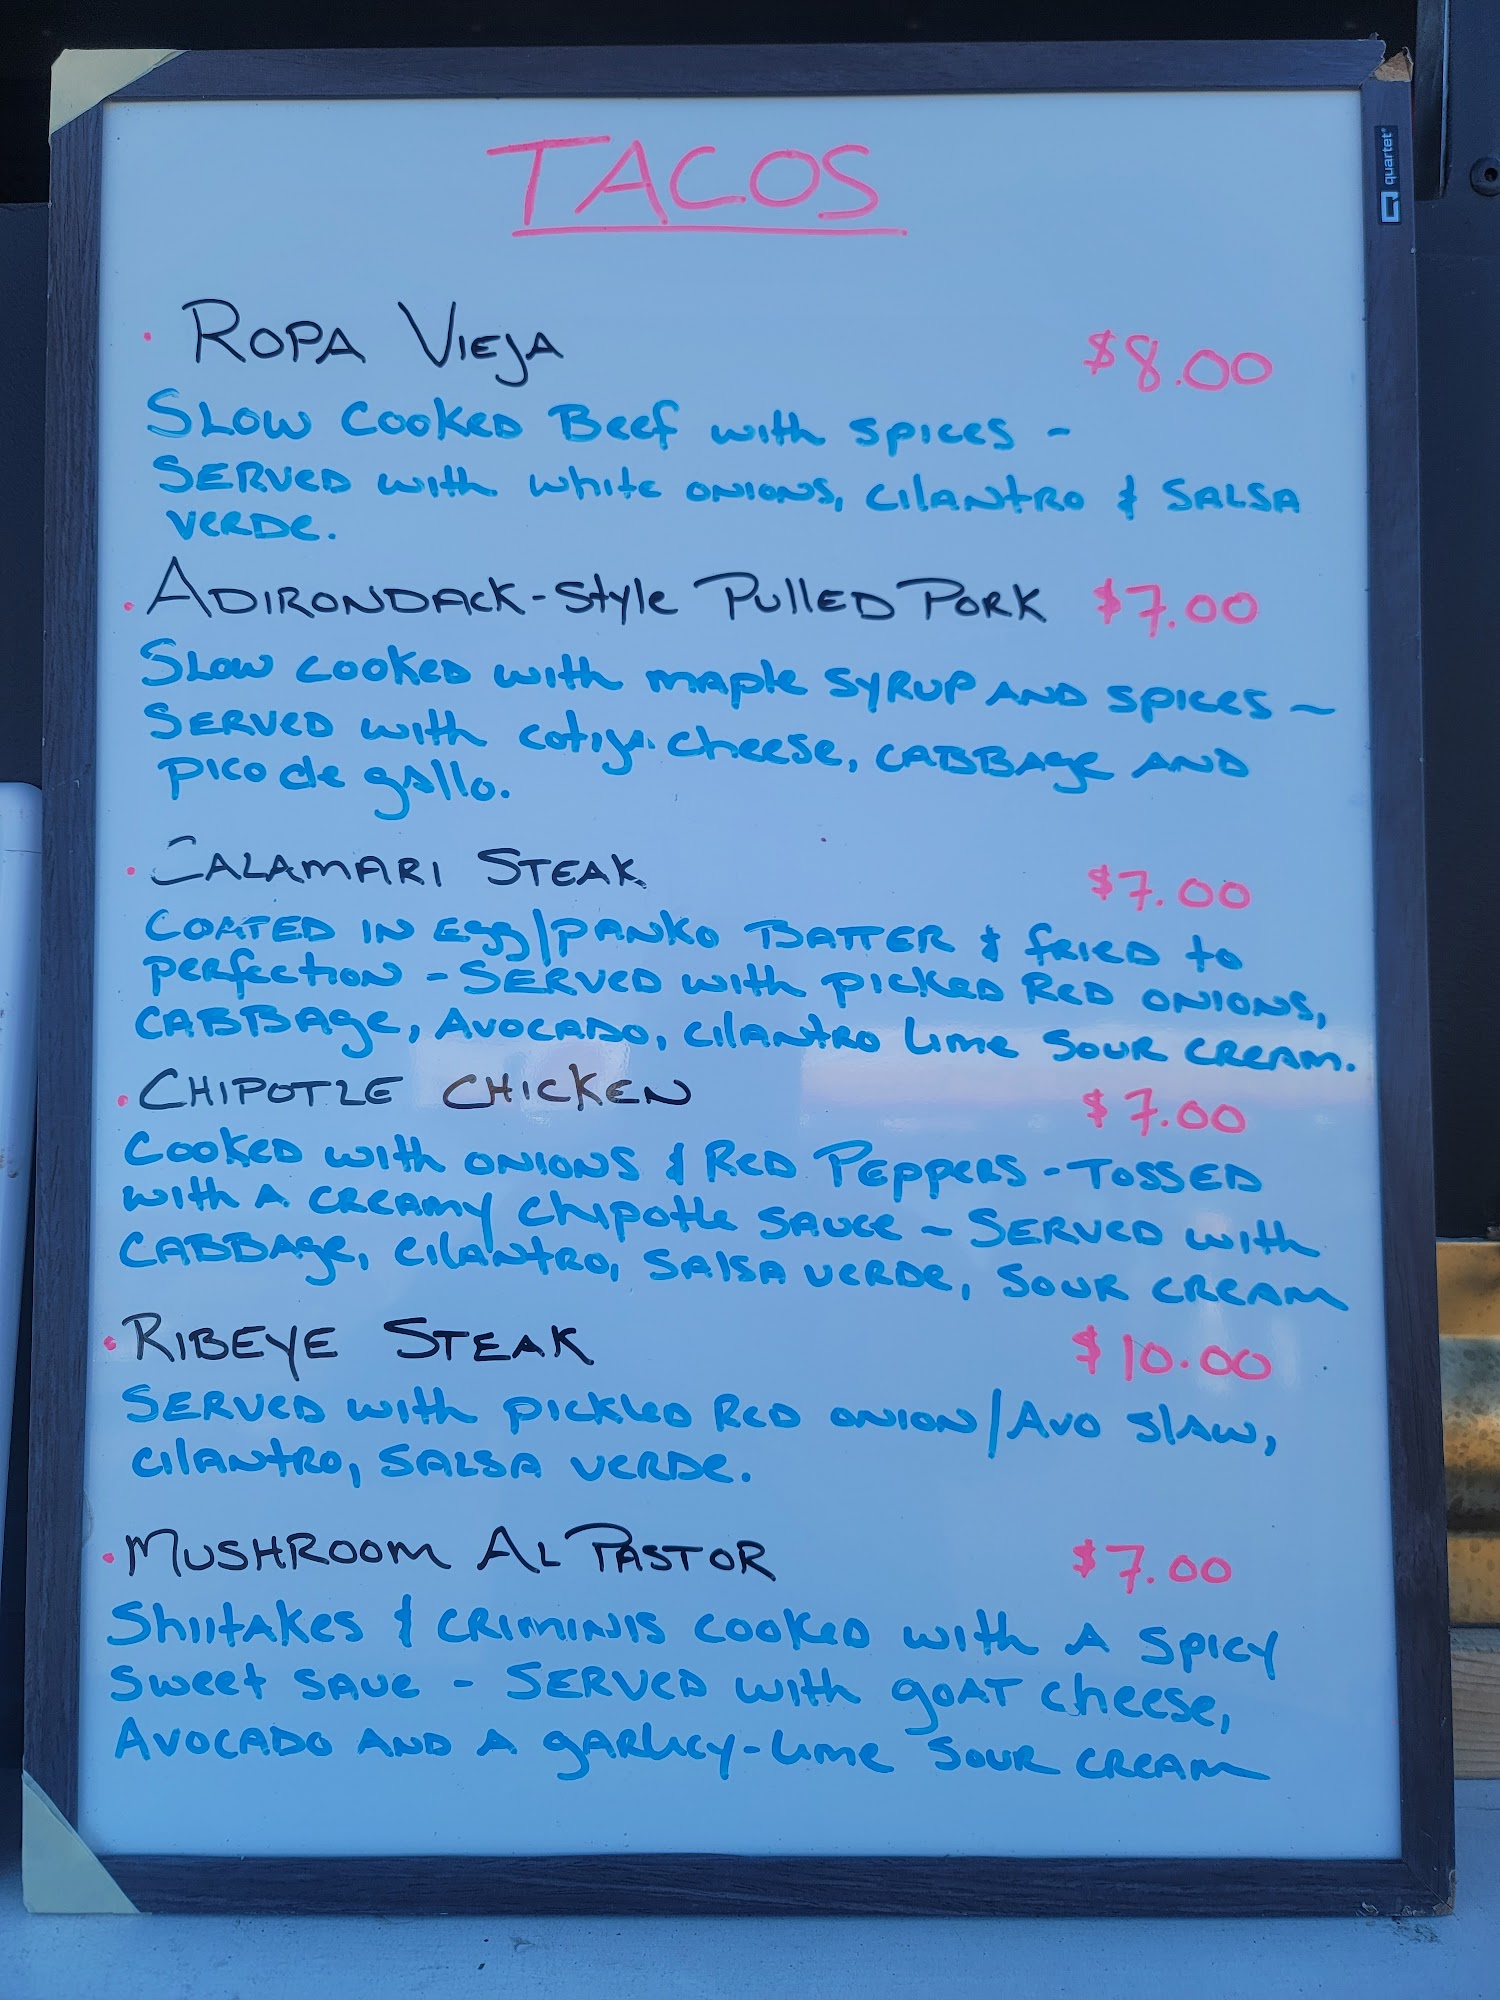 TACOS
quartet
• ROPA VIEJA $8.00
SLOW COOKED Beef with spices -
SERVED with white ONIONS, CILANTRO & SALSA
VERDE.
• ADIRONDACK-Style PULLED PORK $7.00
SLOW COOKED with maple SYRUP AND SPICES ~
SERVED with cotija cheese, CABBAGE AND
PICO de gallo.
• CALAMARI STEAK $7.00
COATED IN Egg/PANKO BATTER & fRIED to
perfection - SERVED with PICKED RED ONIONS,
CABBAGE, AVOCADO, CILANTRO Lime SOUR CREAM.
• CHIPOTLE CHICKEN $7.00
COOKED with ONIONS & RED PEPPERS - TOSSED
with A CREAMY Chipotle SAUCE ~ SERVED with
CABBAGE, CILANTRO, SALSA VERDE, SOUR CREAM
• RIBEYE STEAK $10.00
SERVED with PICKLED RED ONION/AVO SLAW,
CILANTRO, SALSA VERDE.
• MUSHROOM AL PASTOR $7.00
ShiitAKES & CRIMINIS COOKED with A SPICY
Sweet SAUCE - SERVED with GOAT cheese,
AVOCADO AND A GARLICY-Lime SOUR CREAM